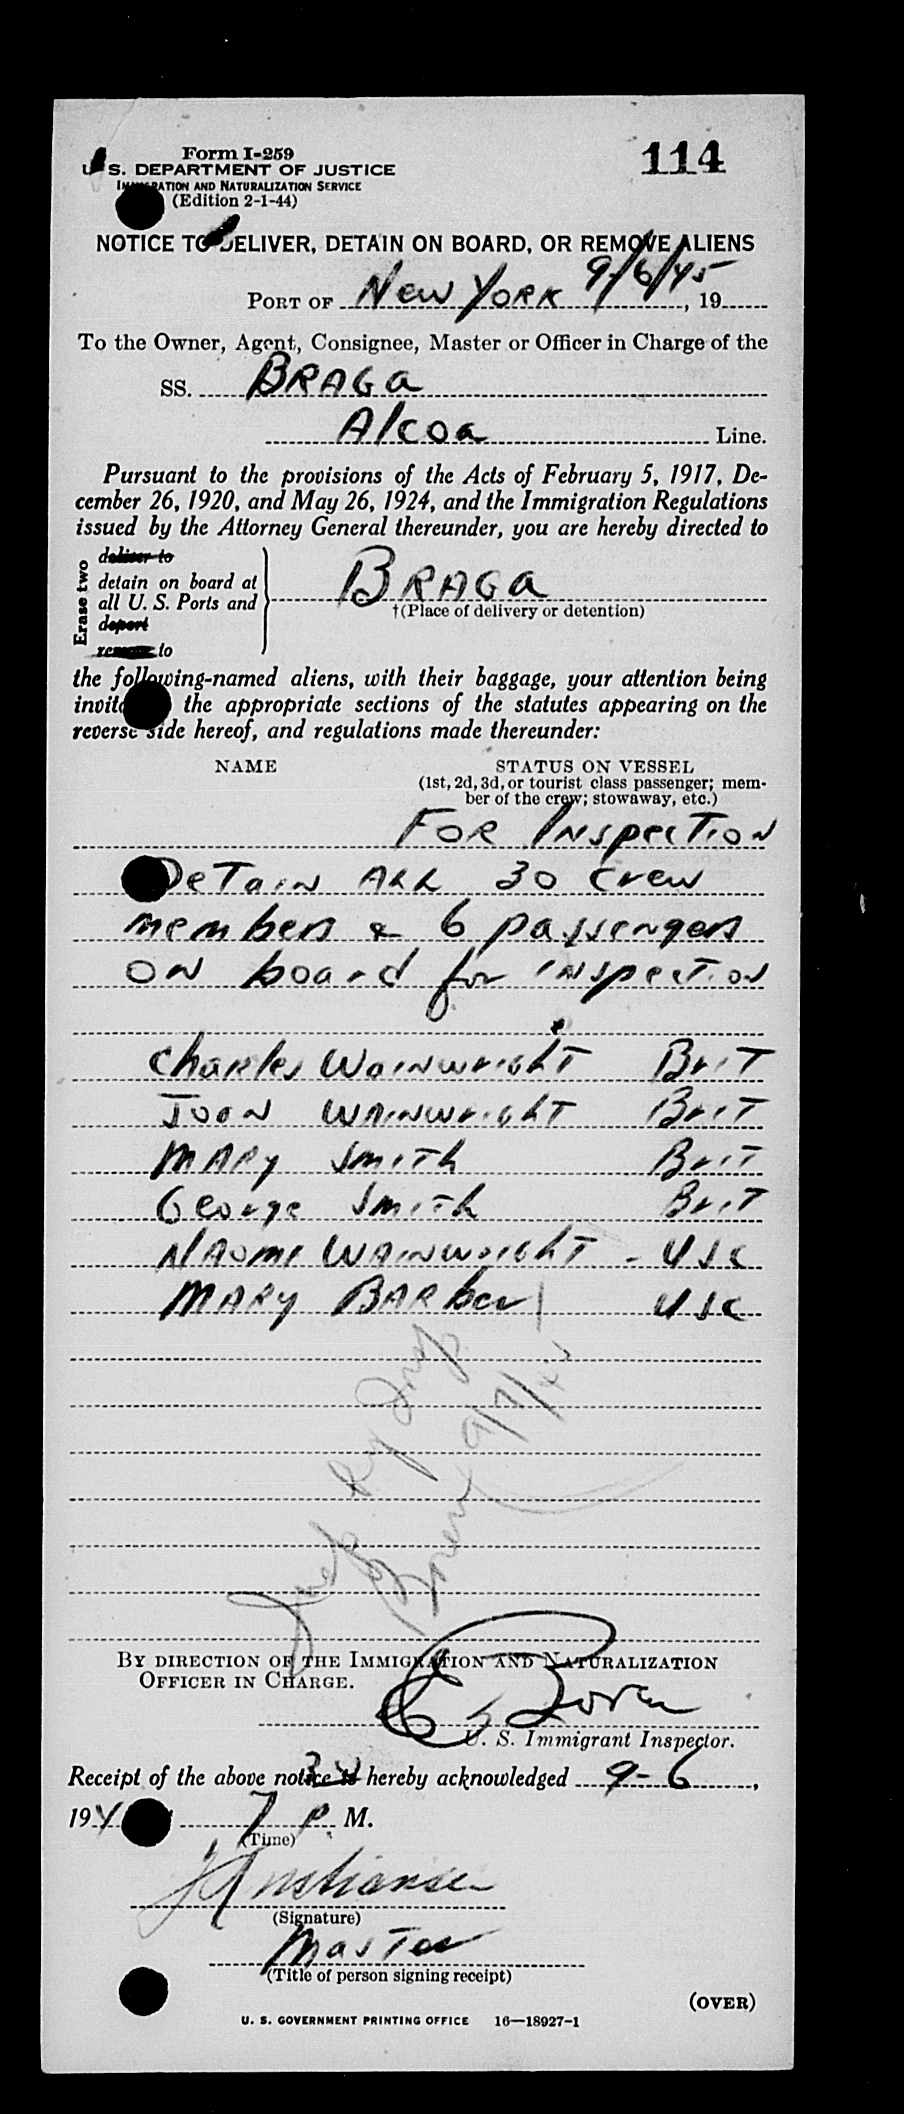 Form I-259
114
U. S. DEPARTMENT OF JUSTICE
IMMIGRATION AND NATURALIZATION SERVICE
(Edition 2-1-44)
NOTICE TO DELIVER, DETAIN ON BOARD, OR REMOVE ALIENS
PORT OF New York 9/6/45, 19
To the Owner, Agent, Consignee, Master or Officer in Charge of the
SS. BRAGa
Alcoa Line.
Pursuant to the provisions of the Acts of February 5, 1917, De-
cember 26, 1920, and May 26, 1924, and the Immigration Regulations
issued by the Attorney General thereunder, you are hereby directed to
Erase two
deliver to
detain on board at
all U. S. Ports and
deport
remove to
BRAGa
†(Place of delivery or detention)
the following-named aliens, with their baggage, your attention being
invited to the appropriate sections of the statutes appearing on the
reverse side hereof, and regulations made thereunder:
NAME STATUS ON VESSEL
(1st, 2d, 3d, or tourist class passenger; mem-
ber of the crew; stowaway, etc.)
FOR Inspection
Detain All 30 crew
members & 6 passengers
on board for inspection
Charles Wainwright Brit
Joan Wainwright Brit
Mary Smith Brit
George Smith Brit
Naomi Wainwright - USC
Mary Barber USC
Insp
9/7/45
BY DIRECTION OF THE IMMIGRATION AND NATURALIZATION
OFFICER IN CHARGE.
U. S. Immigrant Inspector.
Receipt of the above notice is hereby acknowledged 9-6,
194 7 P. M.
(Time)
(Signature)
Master
(Title of person signing receipt)
(OVER)
U. S. GOVERNMENT PRINTING OFFICE 16—18927-1